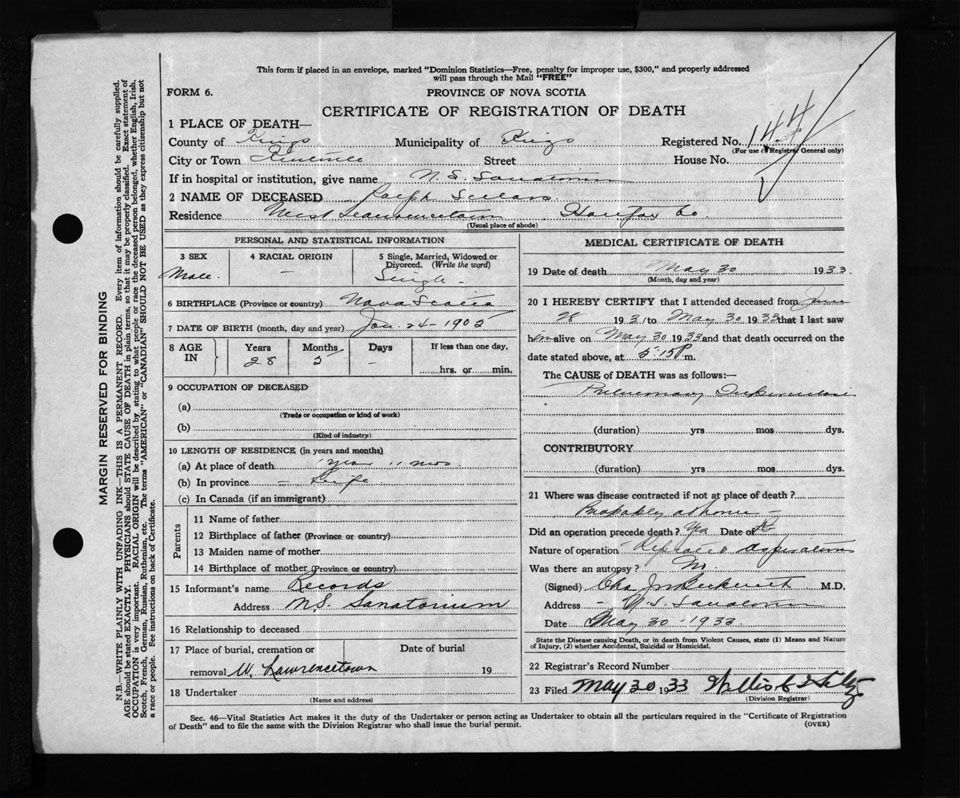 This form if placed in an envelope, marked "Dominion Statistics—Free, penalty for improper use, $300," and properly addressed
will pass through the Mail "FREE"
FORM 6.
PROVINCE OF NOVA SCOTIA
CERTIFICATE OF REGISTRATION OF DEATH
1 PLACE OF DEATH—
County of Kings Municipality of Kings Registered No. 144
(For use of Registrar General only)
City or Town Street House No.
If in hospital or institution, give name N. S. Sanatorium
2 NAME OF DECEASED Ralph
Residence West Halifax Co.
(Usual place of abode)
PERSONAL AND STATISTICAL INFORMATION
3 SEX 4 RACIAL ORIGIN 5 Single, Married, Widowed or
Divorced. (Write the word)
Male. – Single –
6 BIRTHPLACE (Province or country) Nova Scotia
7 DATE OF BIRTH (month, day and year) Jan. 24 – 1905
8 AGE IN Years Months Days If less than one day,
28 5 – hrs. or min.
9 OCCUPATION OF DECEASED
(a)
(Trade or occupation or kind of work)
(b)
(Kind of industry)
10 LENGTH OF RESIDENCE (in years and months)
(a) At place of death 1 year 11 mos.
(b) In province – Life
(c) In Canada (if an immigrant)
Parents
11 Name of father
12 Birthplace of father (Province or country)
13 Maiden name of mother
14 Birthplace of mother (Province or country)
15 Informant's name Records
Address N.S. Sanatorium
16 Relationship to deceased
17 Place of burial, cremation or Date of burial
removal W. Lawrencetown 19
18 Undertaker
(Name and address)
MEDICAL CERTIFICATE OF DEATH
19 Date of death May 30 1933
(Month, day and year)
20 I HEREBY CERTIFY that I attended deceased from June
28 1931 to May 30 1933 that I last saw
him alive on May 30 1933 and that death occurred on the
date stated above, at 5:15 P. m.
The CAUSE of DEATH was as follows:—
Pulmonary Tuberculosis
(duration) yrs mos dys.
CONTRIBUTORY
(duration) yrs mos dys.
21 Where was disease contracted if not at place of death?
Probably at home –
Did an operation precede death? Yes Date of
Nature of operation
Was there an autopsy? No
(Signed) M.D.
Address – N. S. Sanatorium
Date May 30 – 1933
State the Disease causing Death, or in death from Violent Causes, state (1) Means and Nature
of Injury, (2) whether Accidental, Suicidal or Homicidal.
22 Registrar's Record Number
23 Filed May 30 1933
(Division Registrar)
Sec. 46—Vital Statistics Act makes it the duty of the Undertaker or person acting as Undertaker to obtain all the particulars required in the "Certificate of Registration
of Death" and to file the same with the Division Registrar who shall issue the burial permit. (OVER)
MARGIN RESERVED FOR BINDING
N.B.—WRITE PLAINLY WITH UNFADING INK—THIS IS A PERMANENT RECORD. Every item of information should be carefully supplied.
AGE should be stated EXACTLY. PHYSICIANS should STATE CAUSE OF DEATH in plain terms, so that it may be properly classified. Exact statement of
OCCUPATION is very important. RACIAL ORIGIN will be described by stating to what people or race the deceased person belonged, whether English, Irish,
Scotch, French, German, Russian, Ruthenian, etc. The terms "AMERICAN" or "CANADIAN" SHOULD NOT BE USED as they express citizenship but not
a race or people. See instructions on back of Certificate.